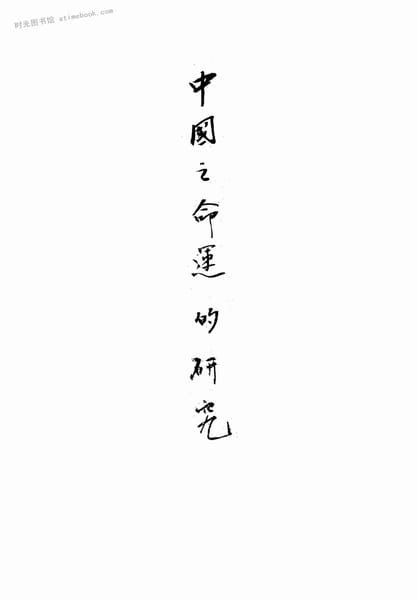 时光图书馆 atimebook.com
中國之命運的研究